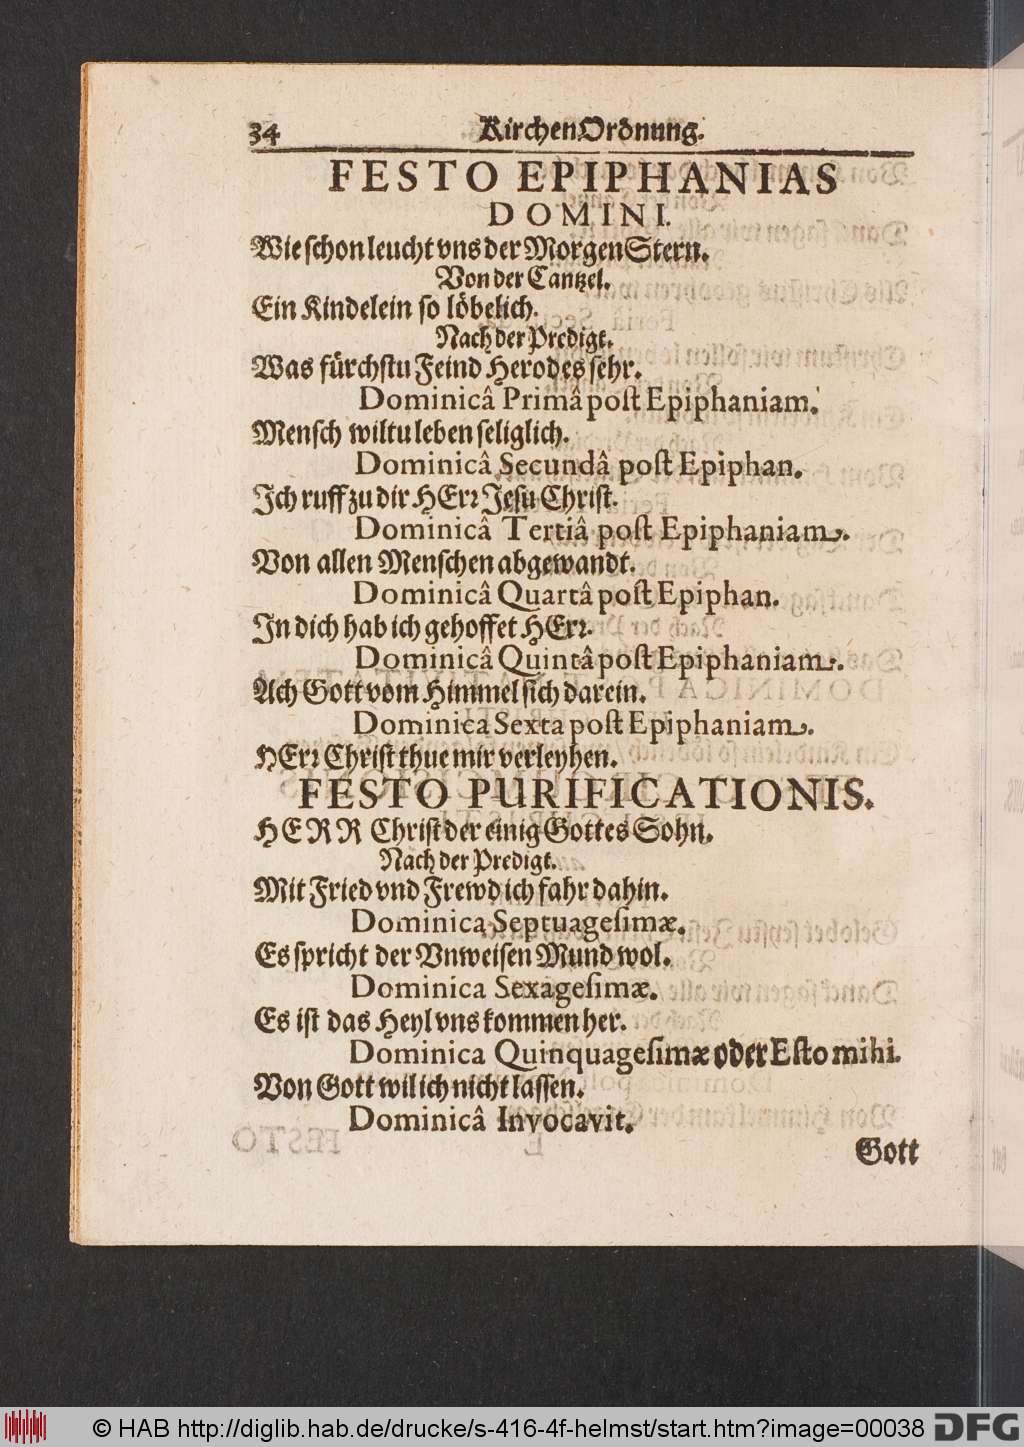 34 KirchenOrdnung.
FESTO EPIPHANIAS
DOMINI.
Wie schon leucht vns der MorgenStern.
Von der Cantzel.
Ein Kindelein so löbelich.
Nach der Predigt.
Was fürchstu Feind Herodes sehr.
Dominicâ Primâ post Epiphaniam.
Mensch wiltu leben seliglich.
Dominicâ Secundâ post Epiphan.
Ich ruff zu dir HErr Jesu Christ.
Dominicâ Tertiâ post Epiphaniam.
Von allen Menschen abgewandt.
Dominicâ Quartâ post Epiphan.
In dich hab ich gehoffet HErr.
Dominicâ Quintâ post Epiphaniam.
Ach Gott vom Himmel sich darein.
Dominica Sexta post Epiphaniam.
HErr Christ thue mir verleyhen.
FESTO PURIFICATIONIS.
HERR Christ der einig Gottes Sohn.
Nach der Predigt.
Mit Fried vnd Frewd ich fahr dahin.
Dominica Septuagesimæ.
Es spricht der Vnweisen Mund wol.
Dominica Sexagesimæ.
Es ist das Heyl vns kommen her.
Dominica Quinquagesimæ oder Esto mihi.
Von Gott wil ich nicht lassen.
Dominicâ Invocavit.
Gott
© HAB http://diglib.hab.de/drucke/s-416-4f-helmst/start.htm?image=00038 DFG